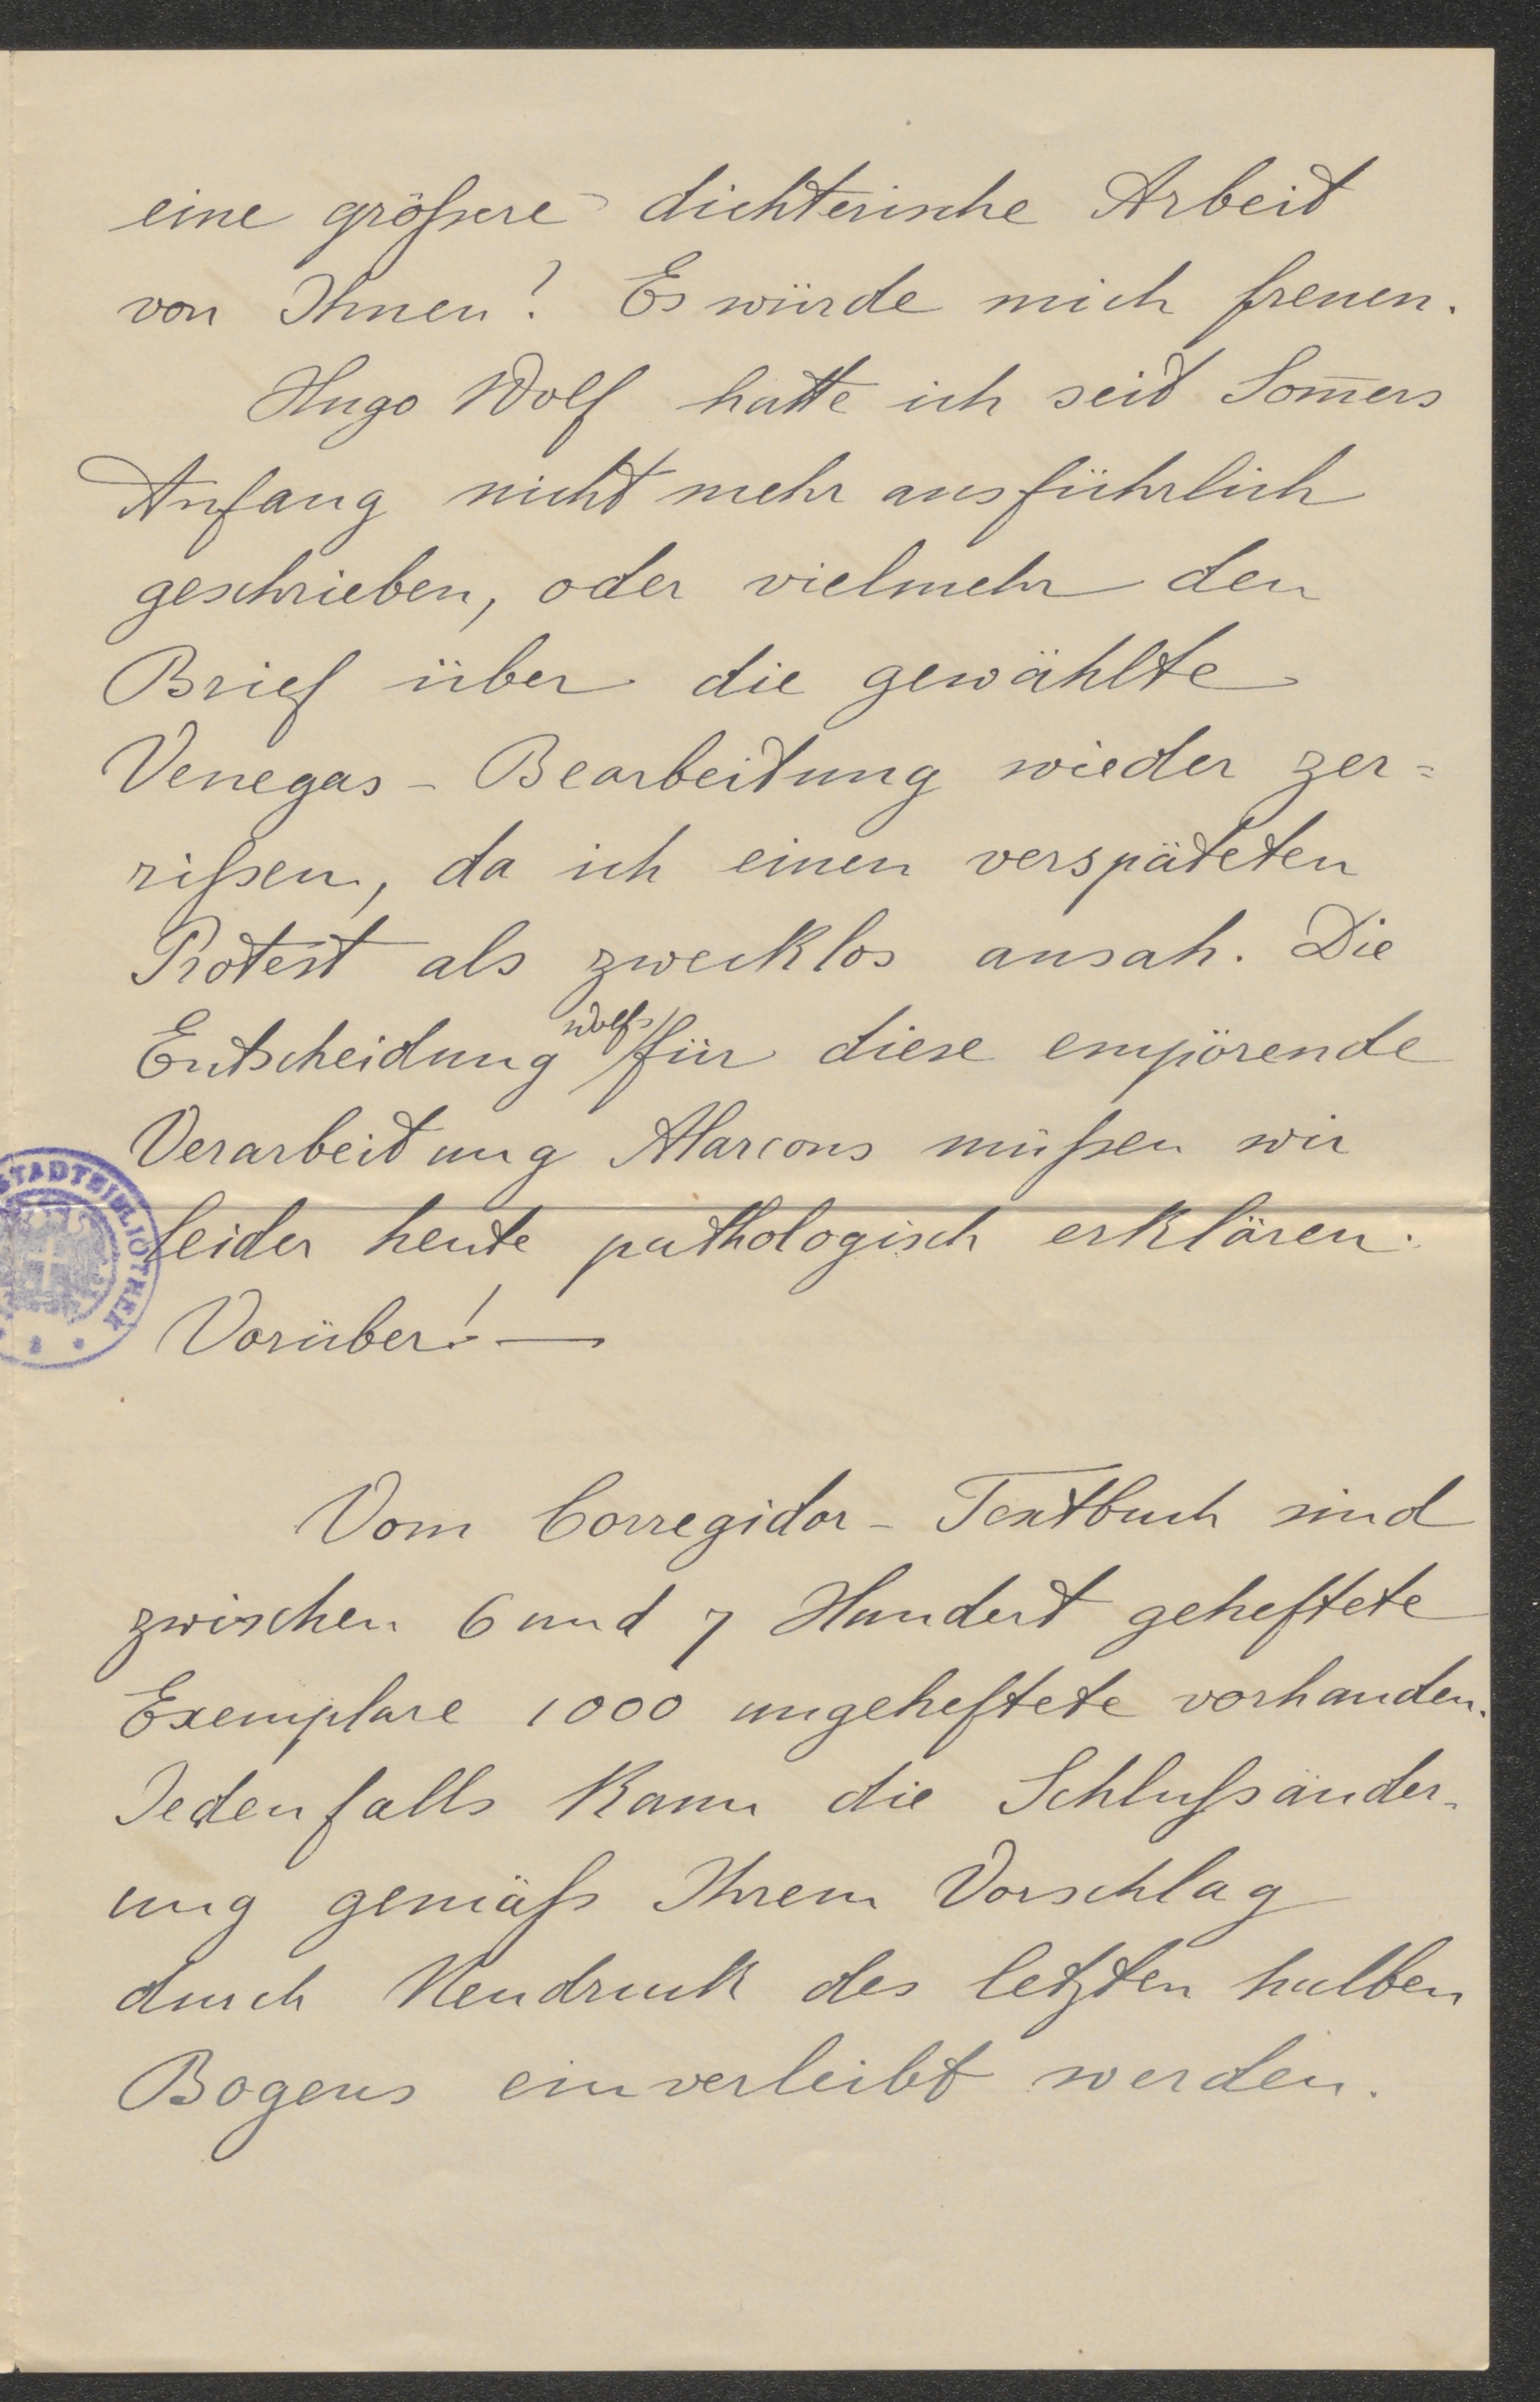 eine größere dichterische Arbeit
von Ihnen? Es würde mich freuen.
Hugo Wolf hatte ich seit Som̄ers
Anfang nicht mehr ausführlich
geschrieben, oder vielmehr den
Brief über die gewählte
Venegas - Bearbeitung wieder zer=
rißen, da ich einen verspäteten
Protest als zwecklos ansah. Die
Entscheidung Wolfs für diese empörende
Verarbeitung Alarcons müßen wir
leider heute pathologisch erklären.
STADTBIBLIOTHEK
Vorüber! —
Vom Corregidor - Textbuch sind
zwischen 6 und 7 Hundert geheftete
Exemplare 1000 ungeheftete vorhanden.
Jedenfalls kann die Schlußänder-
ung gemäß Ihrem Vorschlag
durch Neudruck des letzten halben
Bogens einverleibt werden.